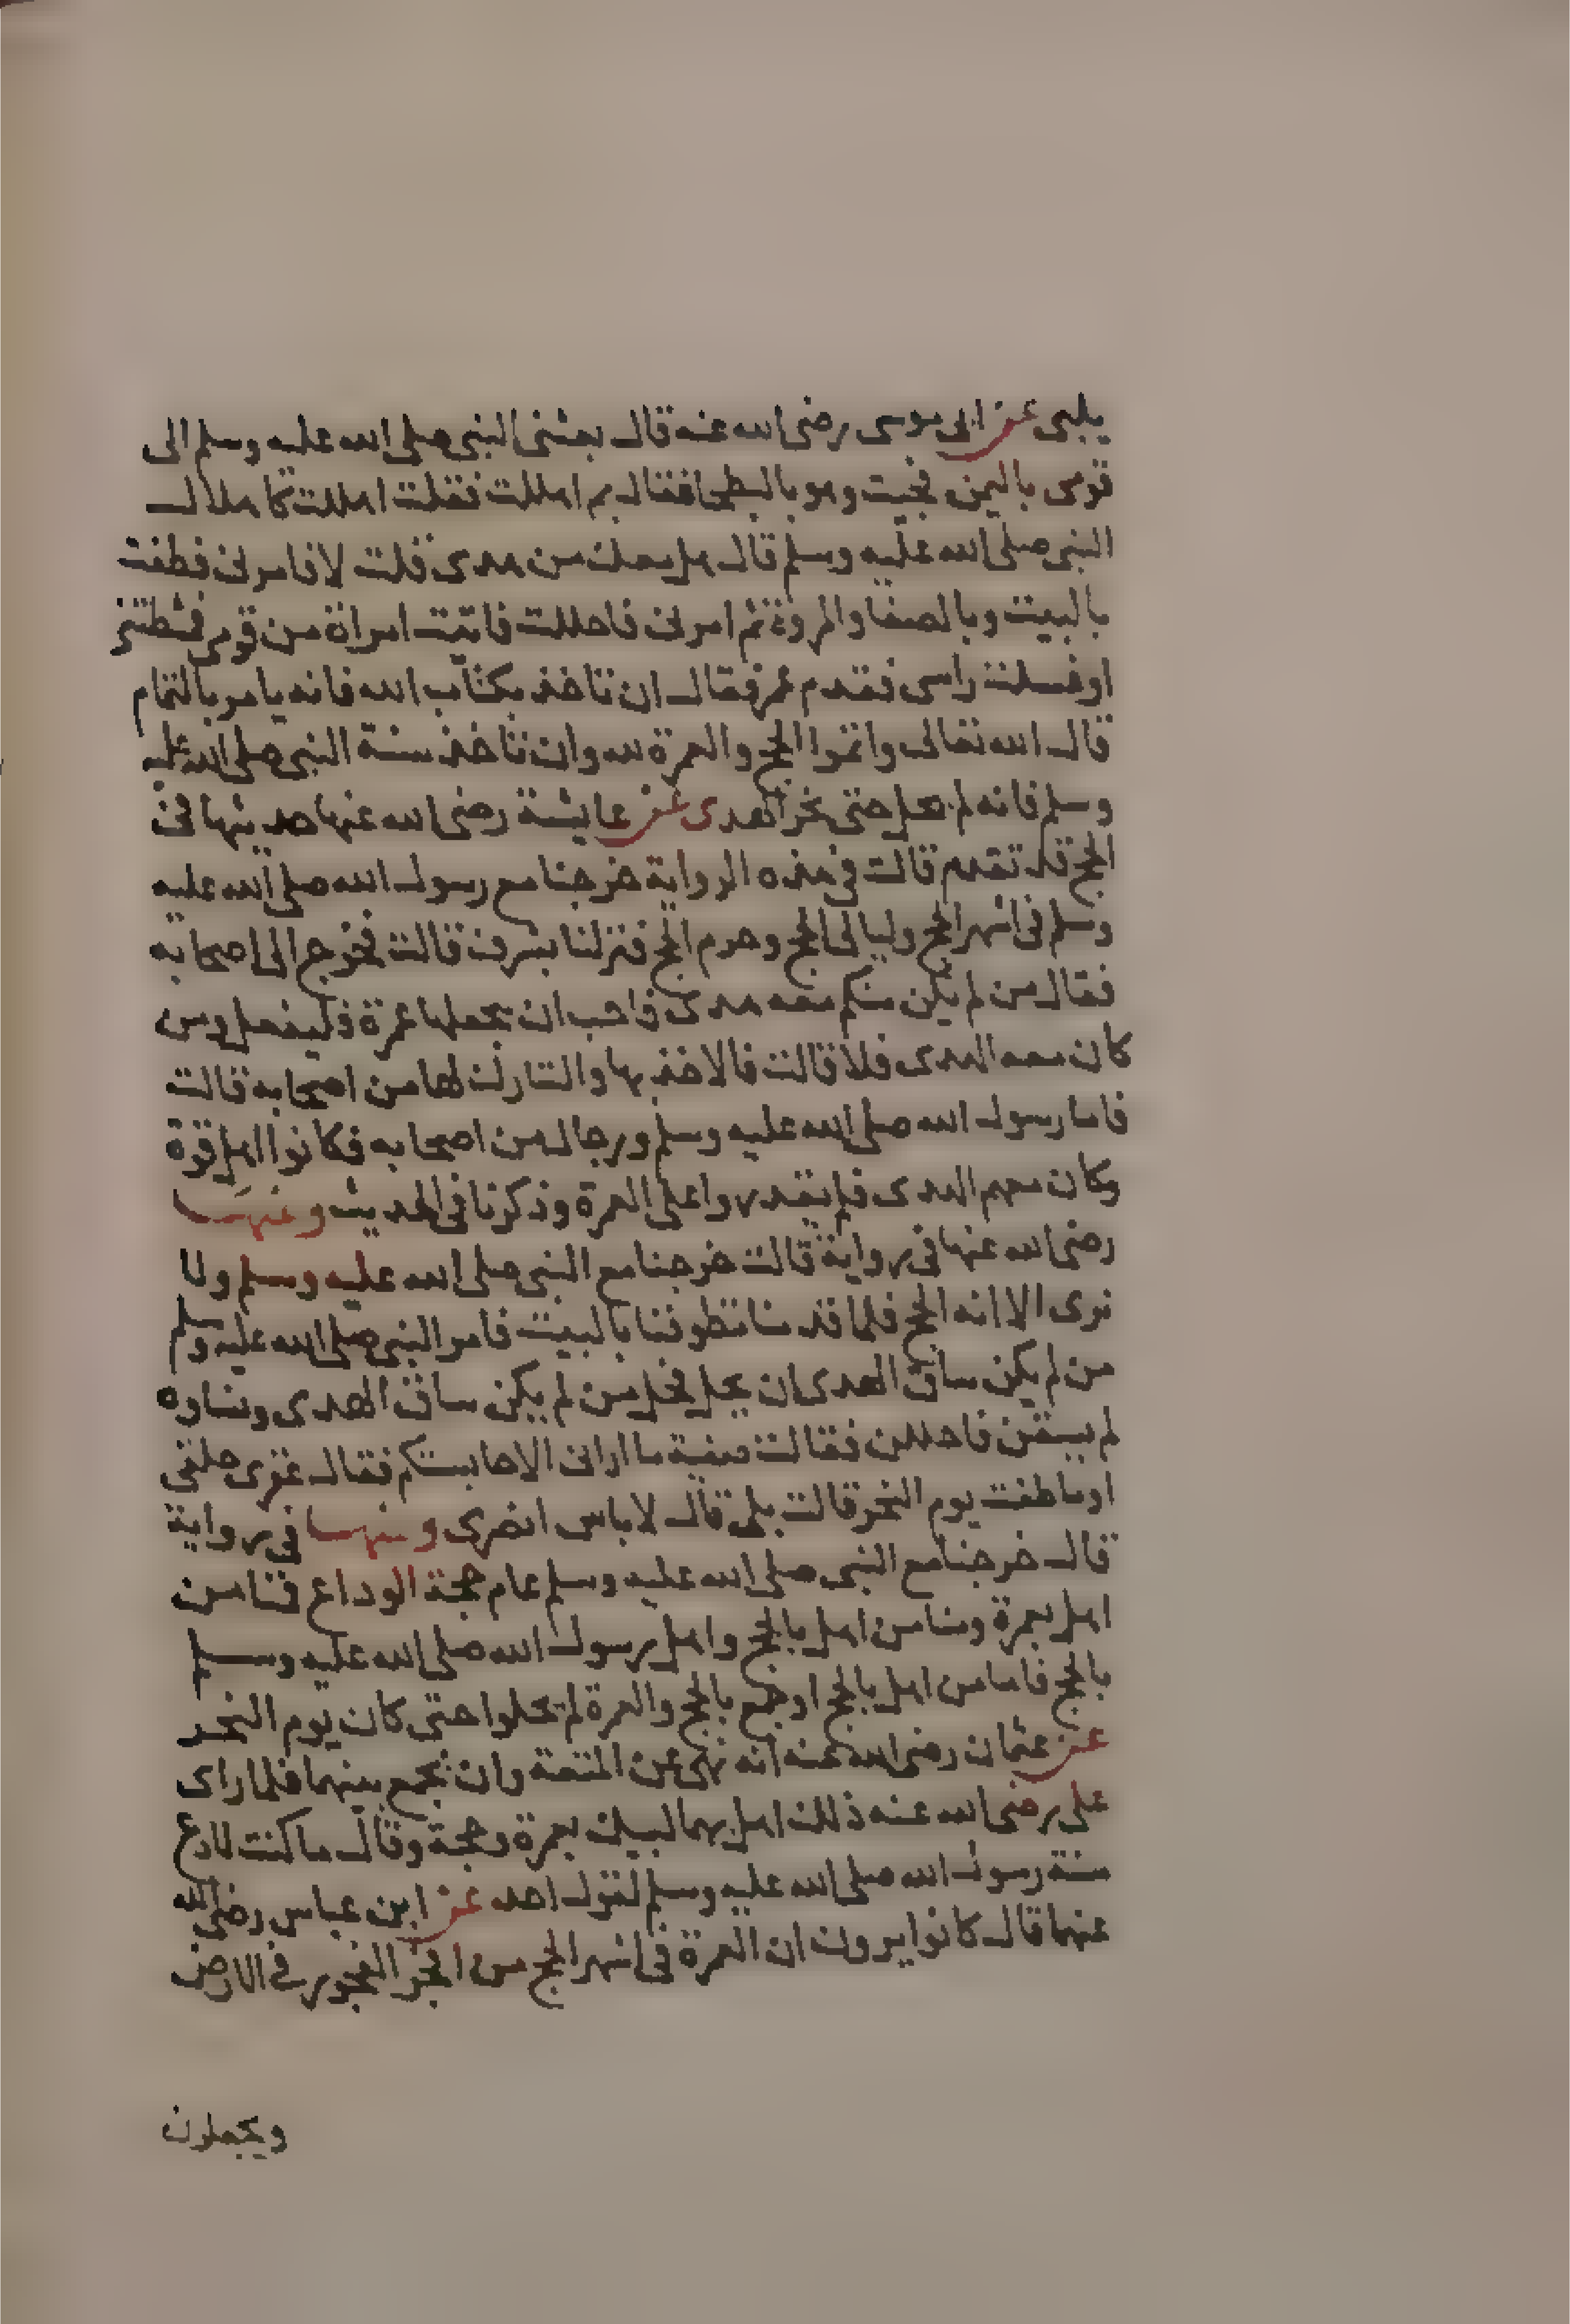 يلبى عن ابى موسى رضى الله عنه قال بعثنى النبى صلى الله عليه وسلم الى
قومى باليمن فجيت وهو بالبطحا فقال بم اهللت فقلت اهللت كاهلال
النبى صلى الله عليه وسلم قال هل معك من هدى قلت لا فامرنى فطفت
بالبيت وبالصفا والمروة ثم امرنى فاحللت فاتيت امراة من قومى فمشطتنى
او غسلت راسى فقدم عمر فقال ان ناخذ بكتاب الله فانه يامر بالتمام
قال الله تعالى واتموا الحج والعمرة لله وان ناخذ سنة النبى صلى الله عليه
وسلم فانه لم يحل حتى نحر الهدى عن عايشة رضى الله عنها حديثها فى
الحج قد تقدم قالت فى هذه الرواية خرجنا مع رسول الله صلى الله عليه
وسلم فى اشهر الحج وليالى الحج وحرم الحج فنزلنا بسرف قالت فخرج الى اصحابه
فقال من لم يكن منكم معه هدى فاحب ان يجعلها عمرة فليفعل ومن
كان معه الهدى فلا قالت فالاخذ بها والتارك لها من اصحابه قالت
فاما رسول الله صلى الله عليه وسلم ورجال من اصحابه فكانوا اهل قوة
وكان معهم الهدى فلم يقدروا على العمرة وذكرنا فى الحديث وعنها
رضى الله عنها فى رواية قالت خرجنا مع النبى صلى الله عليه وسلم ولا
نرى الا انه الحج فلما قدمنا تطوفنا بالبيت فامر النبى صلى الله عليه وسلم
من لم يكن ساق الهدى ان يحل فحل من لم يكن ساق الهدى ونساوه
لم يسقن فاحللن فقالت صفية ما ارانى الا حابستكم فقال عقرى حلقى
او ما طفت يوم النحر قالت بلى قال لا باس انفرى وعنها فى رواية
قال خرجنا مع النبى صلى الله عليه وسلم عام حجة الوداع فمنا من
اهل بعمرة ومنا من اهل بالحج واهل رسول الله صلى الله عليه وسلم
بالحج فاما من اهل بالحج او جمع بالحج والعمرة لم يحلوا حتى كان يوم النحر
عن عثمان رضى الله عنه انه نهى عن المتعة وان يجمع بينهما فلما راى
على رضى الله عنه ذلك اهل بهما لبيك بعمرة وحجة وقال ما كنت لادع
سنة رسول الله صلى الله عليه وسلم لقول احد عن ابن عباس رضى الله
عنهما قال كانوا يرون ان العمرة فى اشهر الحج من افجر الفجور فى الارض
ويجعلون